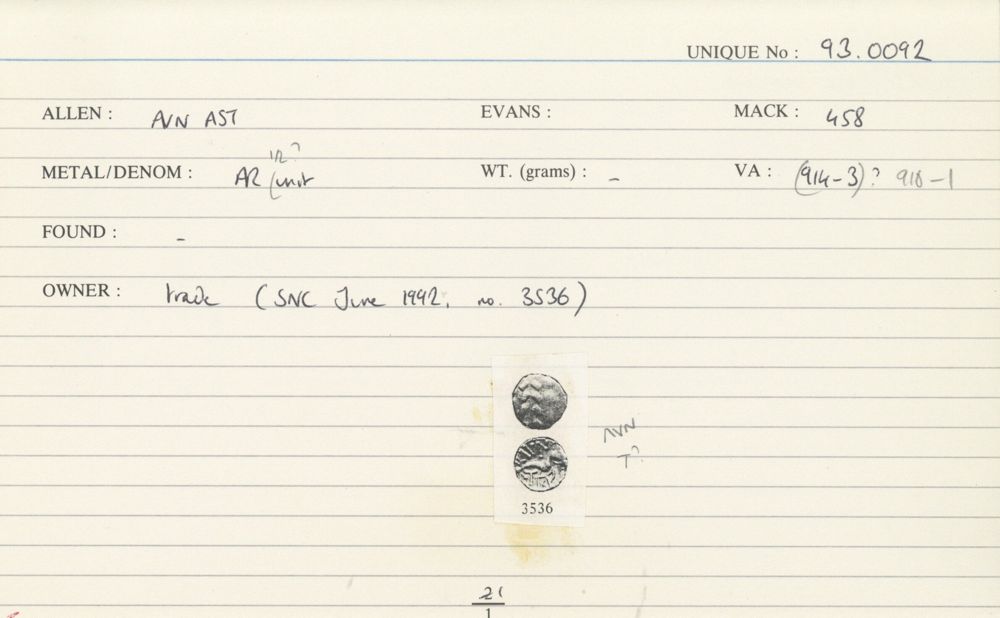 UNIQUE No : 93.0092
ALLEN : AVN AST EVANS : MACK : 458
1/2?
METAL/DENOM : AR (unit WT. (grams) : - VA : (914-3)? 918-1
FOUND : -
OWNER : trade (SNC June 1992, no. 3536)
AVN
T?
3536
21
1